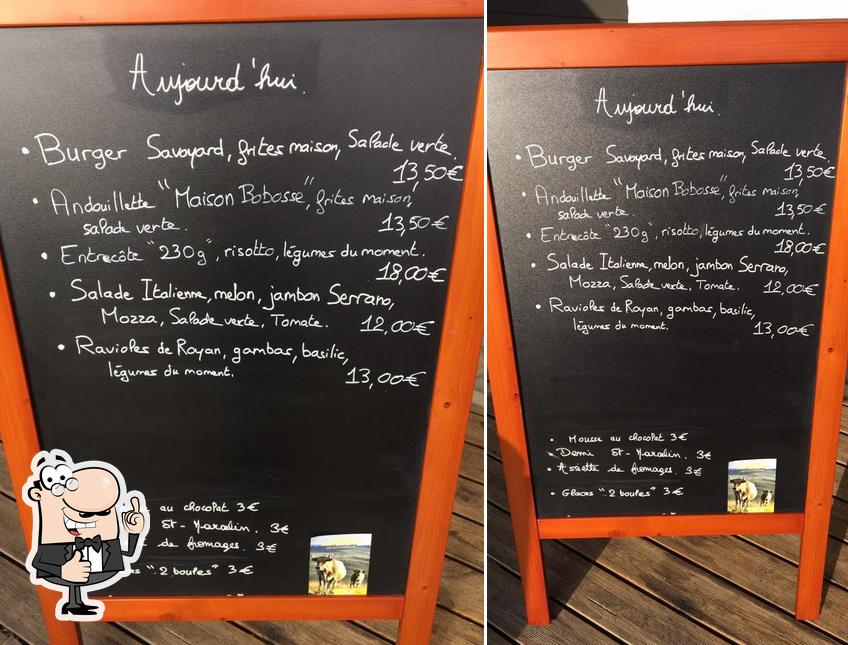 Aujourd'hui.
• Burger Savoyard, frites maison, Salade verte.
13,50€
• Andouillette "Maison Bobosse", frites maison,
salade verte. 13,50€
• Entrecôte "230g", risotto, légumes du moment.
18,00€
• Salade Italienne, melon, jambon Serrano,
Mozza, Salade verte, Tomate. 12,00€
• Ravioles de Royan, gambas, basilic,
légumes du moment. 13,00€
au chocolat 3€
St-Marcelin. 3€
de fromages. 3€
"2 boules" 3€
Aujourd'hui.
• Burger Savoyard, frites maison, Salade verte.
13,50€
• Andouillette "Maison Bobosse", frites maison,
salade verte. 13,50€
• Entrecôte "230g", risotto, légumes du moment.
18,00€
• Salade Italienne, melon, jambon Serrano,
Mozza, Salade verte, Tomate. 12,00€
• Ravioles de Royan, gambas, basilic,
légumes du moment. 13,00€
• Mousse au chocolat 3€
• Demi St-Marcelin. 3€
• Assiette de fromages. 3€
• Glaces "2 boules" 3€